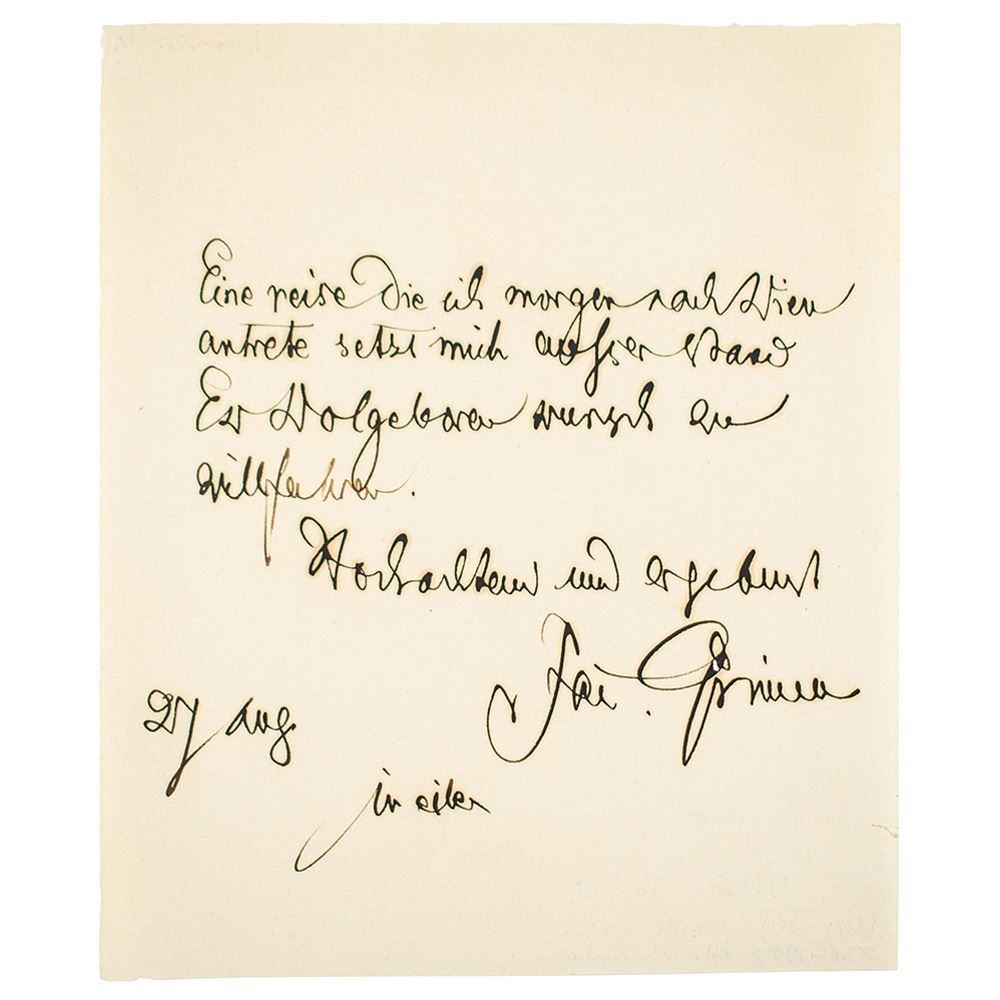 Eine reise die ich morgen nach Wien
antrete setzt mich ausser stand
Ew Wolgeboren wunsch zu
willfahren.
Hochachtend und ergebenst
Jac. Grimm
27 aug.
in eile